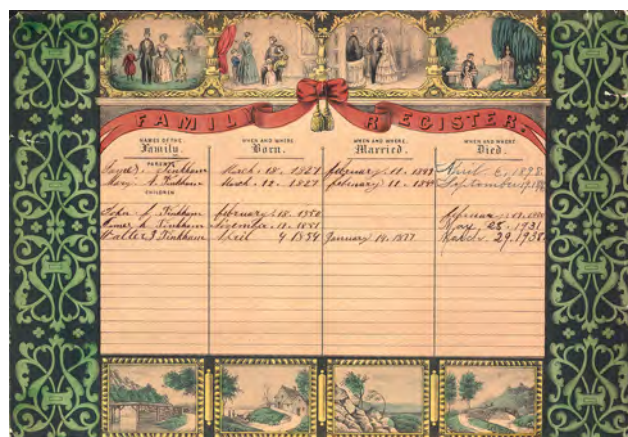 FAMILY REGISTER.
NAMES OF THE Family. WHEN AND WHERE Born. WHEN AND WHERE. Married. WHEN AND WHERE Died.
PARENTS
James Tinkham March. 18. 1821 february. 11. April 6, 1898
Mary A Tinkham March. 12. 1827 february 11. September
CHILDREN
John Tinkham february. 18. 13.
Tinkham November. 11. 1851 May 28. 1931
Walter J Tinkham April 4 1854 January 19. 1877 March 29. 1938